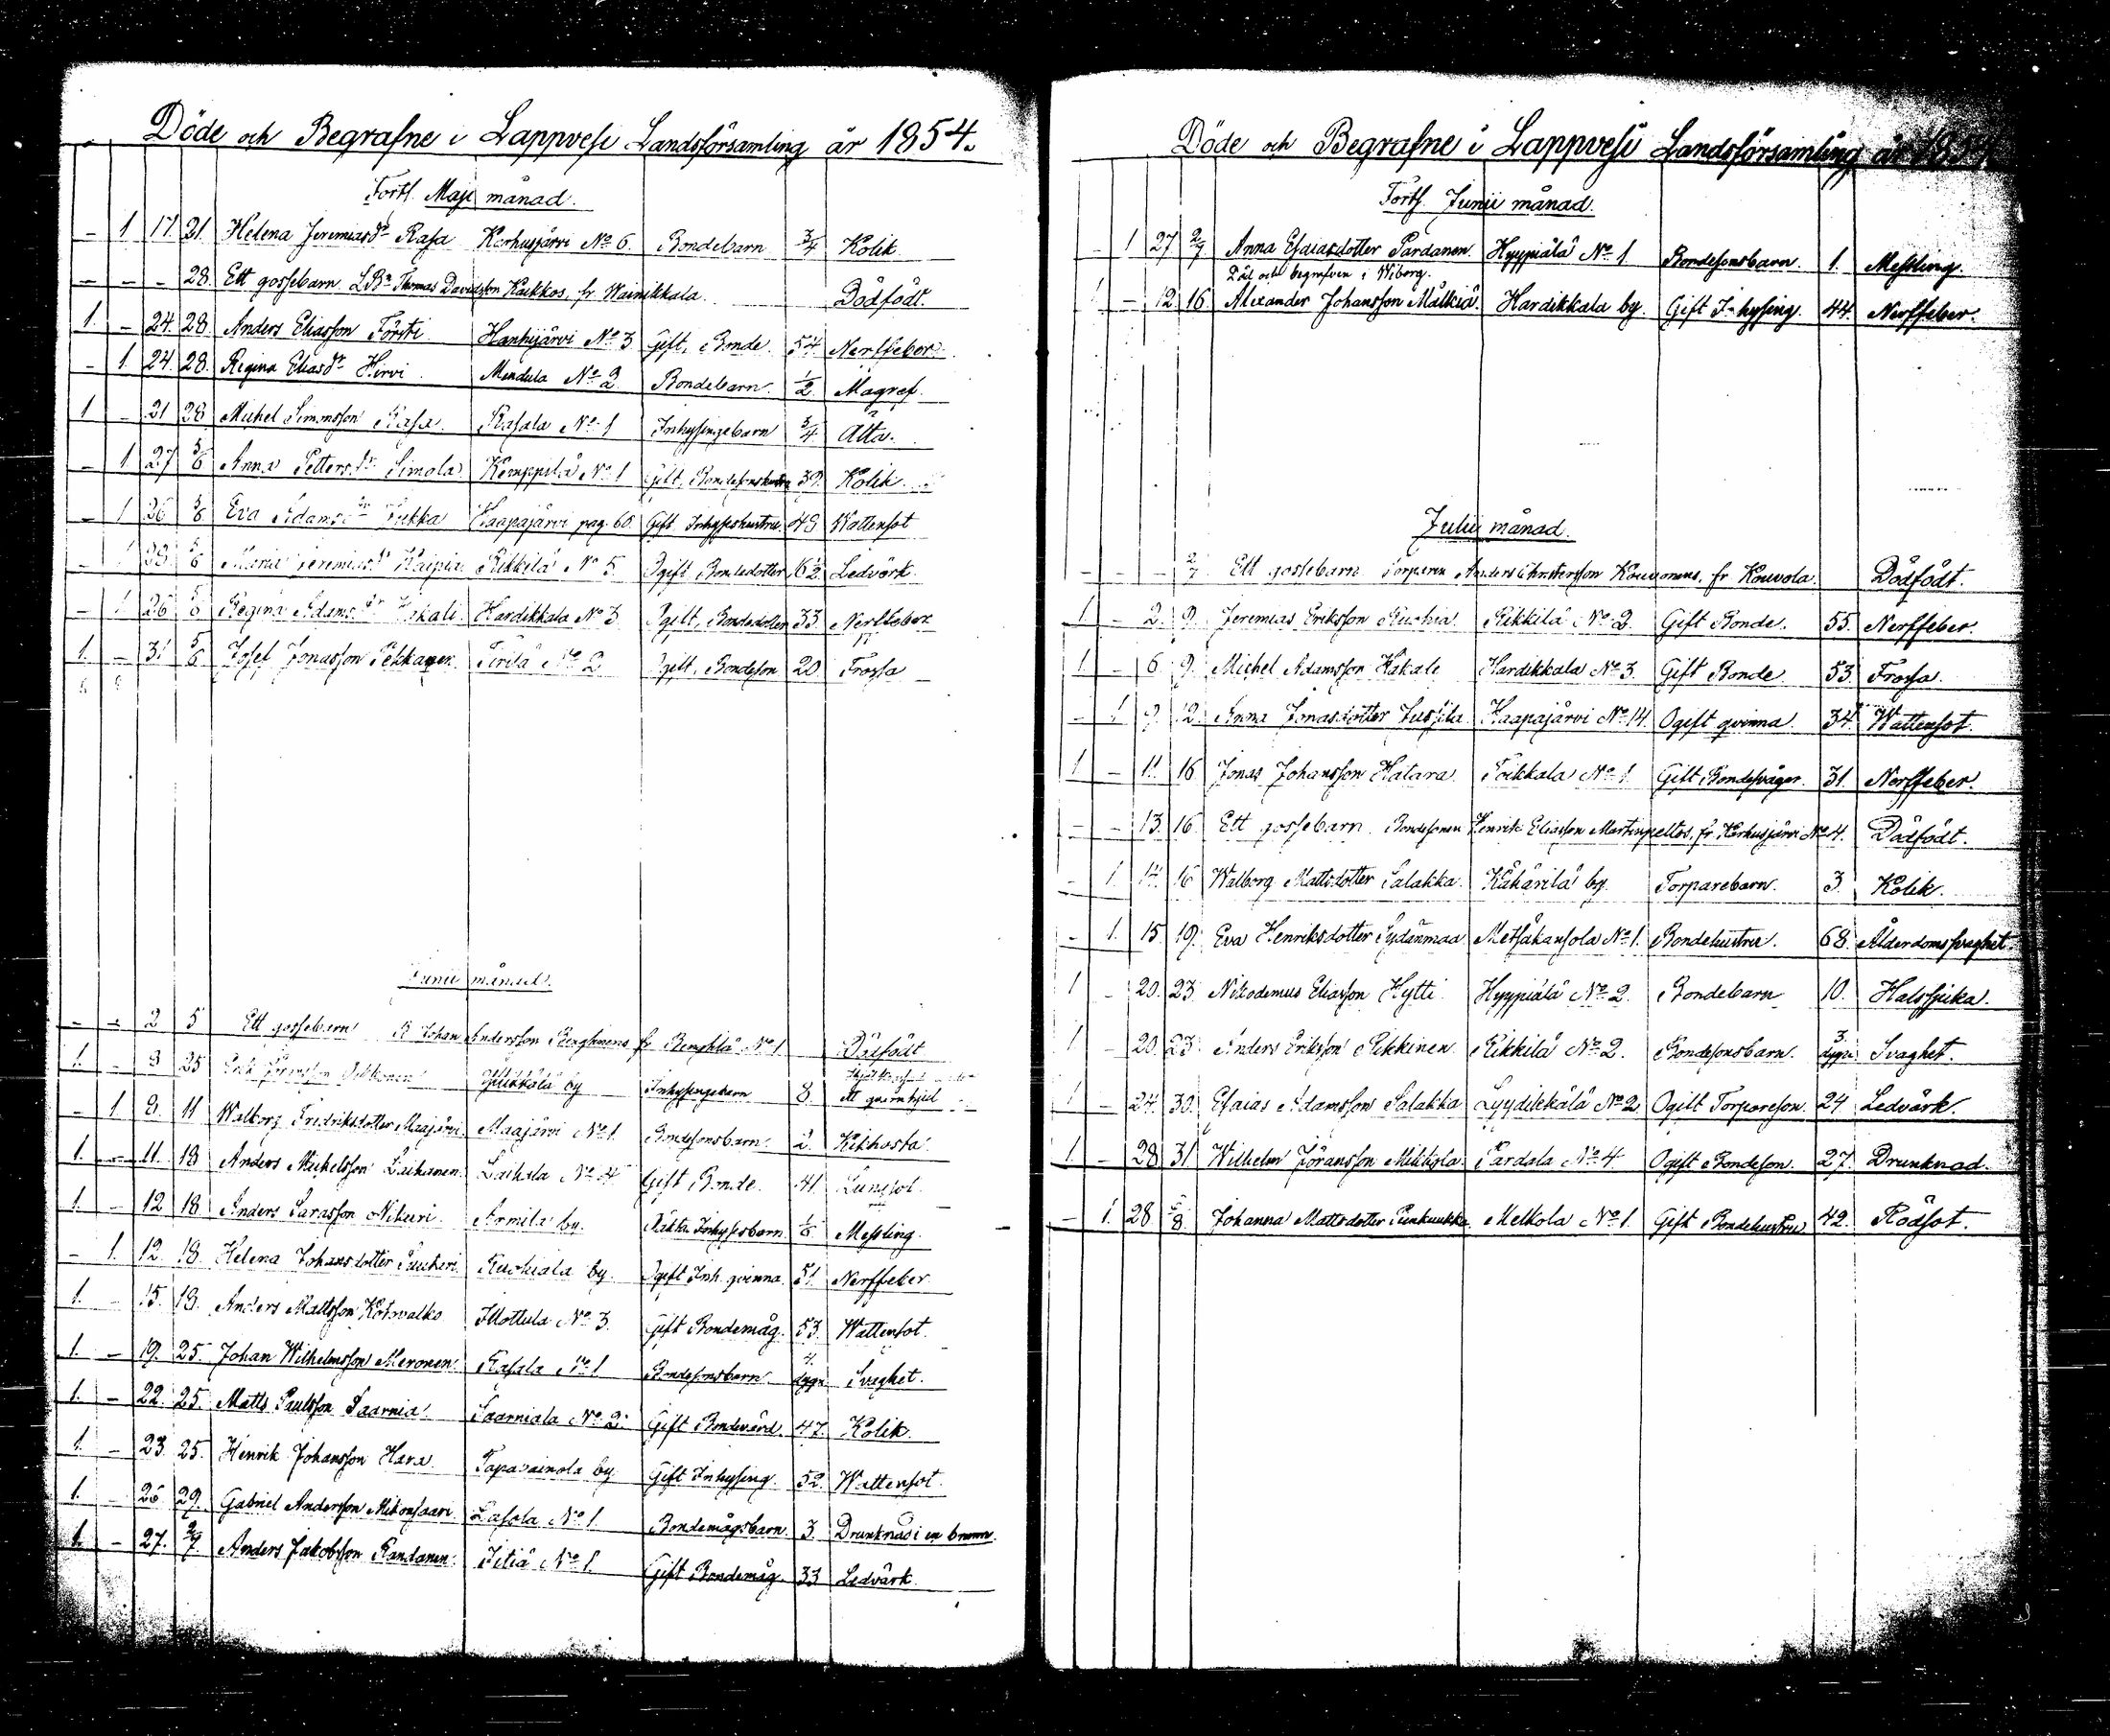 Döde och Begrafne i Lappvesi Landsförsamling år 1854.
Forts. Maji månad.
– 1 17 21 Helena Jeremiasdr Rasa Karhusjärvi No 6. Bondebarn 3/4 Kolik.
– – – 28. Ett gossebarn LBn Thomas Davidsson Kaikkos, fr Wainikkala. Dödfödt.
1. – 24. 28. Anders Eliasson Försti Hanhijärvi No 3 Gift, Bonde. 54 Nerffeber.
– 1. 24. 28. Regina Eliasdr Hirvi Mentula No 2 Bondebarn. 1/2 Magref.
1 – 21 28 Michel Simonsson Rasa. Rasala No 1 Inhysingebarn 3/4 Alta.
– 1 27 5/6 Anna Pettersdr Simola Kemppilä No 1 Gift, Bondesonshustru 39. Kolik.
– 1 26 5/6 Eva Adamsdr Haapajärvi pag. 60. Gift Inhyseshustru. 48 Wattensot
– 1 5/6 Maria Jeremiasdr Raipia Rikkilä No 5. Ogift Bondedotter 16 1/2 Ledvärk.
– 1 26 5/6 Regina Adamsdr Kakali Hardikkala No 3 Ogift, Bondedotter 33. Nerffeber
1. – 31 5/6 Josef Jonasson Pekkanen. No 2 Ogift, Bondeson 20 Frossa
Junii månad.
– – 2 5 Ett gossebarn B Johan Andersson fr No 1 Dödfödt
1. – 3 25 by Inhysingebarn 8. ett qvarnhjul
– 1. 8. 11 Walborg Fredriksdotter Maajärvi. Maajärvi No 1. Bondesonsbarn. 2. Kikhosta.
1. – 11. 18 Anders Mickelsson Laihanen. Laihala No 4 Gift Bonde. 41. Lungsot.
1. – 12 18 Anders Sarasson Nikuri. Armila by. Oäkta Inhysesbarn 1/6 Messling.
– 1. 12. 18. Helena Johansdotter Ruohiala by. Ogift Inh. qvinna. 51. Nerffeber
1. – 15. 18. Anders Mattsson Kotvalko Ilottula No 3. Gift Bondemåg. 53. Wattensot.
1. – 19. 25. Johan Wilhelmsson Meronen. Rasala No 1 Bondesonsbarn 4. dygn Svaghet.
1. – 22. 25. Matts Paulsson Saarnia. Saarniala No 2. Gift Bondevärd. 47. Kolik.
1. – 23. 25. Henrik Johansson Hara. Tapavainola by. Gift Inhysing. 52. Wattensot.
1. – 25 29. Gabriel Andersson Mikonsaari. Lasola No 1. Bondemågsbarn. 3. Drunknad i en brunn.
1. – 27. 2/7 Anders Jakobsson Randanen. Itiä No 1. Gift Bondemåg. 33 Ledvärk.
Döde och Begrafne i Lappvesi Landsförsamling år 1854
Forts. Junii månad.
– 1 27 2/7 Anna Esaiasdotter Pardanen. Hyypiälä No 1. Bondesonsbarn. 1. Messling.
Död och begrafven i Wiborg.
1 – 12 16 Alexander Johansson Mälkiä. Hardikkala by. Gift Inhysing. 44. Nerffeber.
Julii månad.
– – – 2/7 Ett gossebarn Torparen Anders Christersson Kouvonens, fr Kouvola. Dödfödt.
1 – 2. 9. Jeremias Eriksson Ruohia. Rikkilä No 2. Gift Bonde. 55. Nerffeber.
1 – 6 9. Michel Adamsson Kakali Hardikkala No 3. Gift Bonde 53. Frossa.
– 1. 9. 12. Anna Jonasdotter Jussila. Haapajärvi No 14. Ogift qvinna. 34. Wattensot.
1 – 11. 16. Jonas Johansson Hatara. Toikkala No 1. Gift Bondesvåger. 31. Nerffeber.
– – 13. 16. Ett gossebarn. Bondesonen Henrik Eliasson Martinpeltos, fr Karhusjärvi No 4. Dödfödt.
– 1. 14. 16 Walborg Mattsdotter Salakka. Kähärilä by. Torparebarn. 3. Kolik.
– 1. 15. 19. Eva Henriksdotter Sydänmaa Metsäkansola No 1. Bondehustru. 68. Ålderdomssvaghet
1 – 20. 23. Nikodemus Eliasson Hytti. Hyypiälä No 2. Bondebarn 10. Halssjuka.
1 – 20. 23. Anders Eriksson Rikkinen Rikkilä No 2. Bondesonsbarn. 3. dygn Svaghet.
1 – 24. 30. Esaias Adamsson Salakka Lyydikkälä No 2 Ogift Torpareson. 24 Ledvärk.
1 – 28 31 Wilhelm Jöransson Mikkola. Pardala No 4 Ogift Bondeson. 27. Drunknad.
– 1. 28 5/8 Johanna Mattsdotter Melkola No 1. Gift Bondehustru 42. Rödsot.